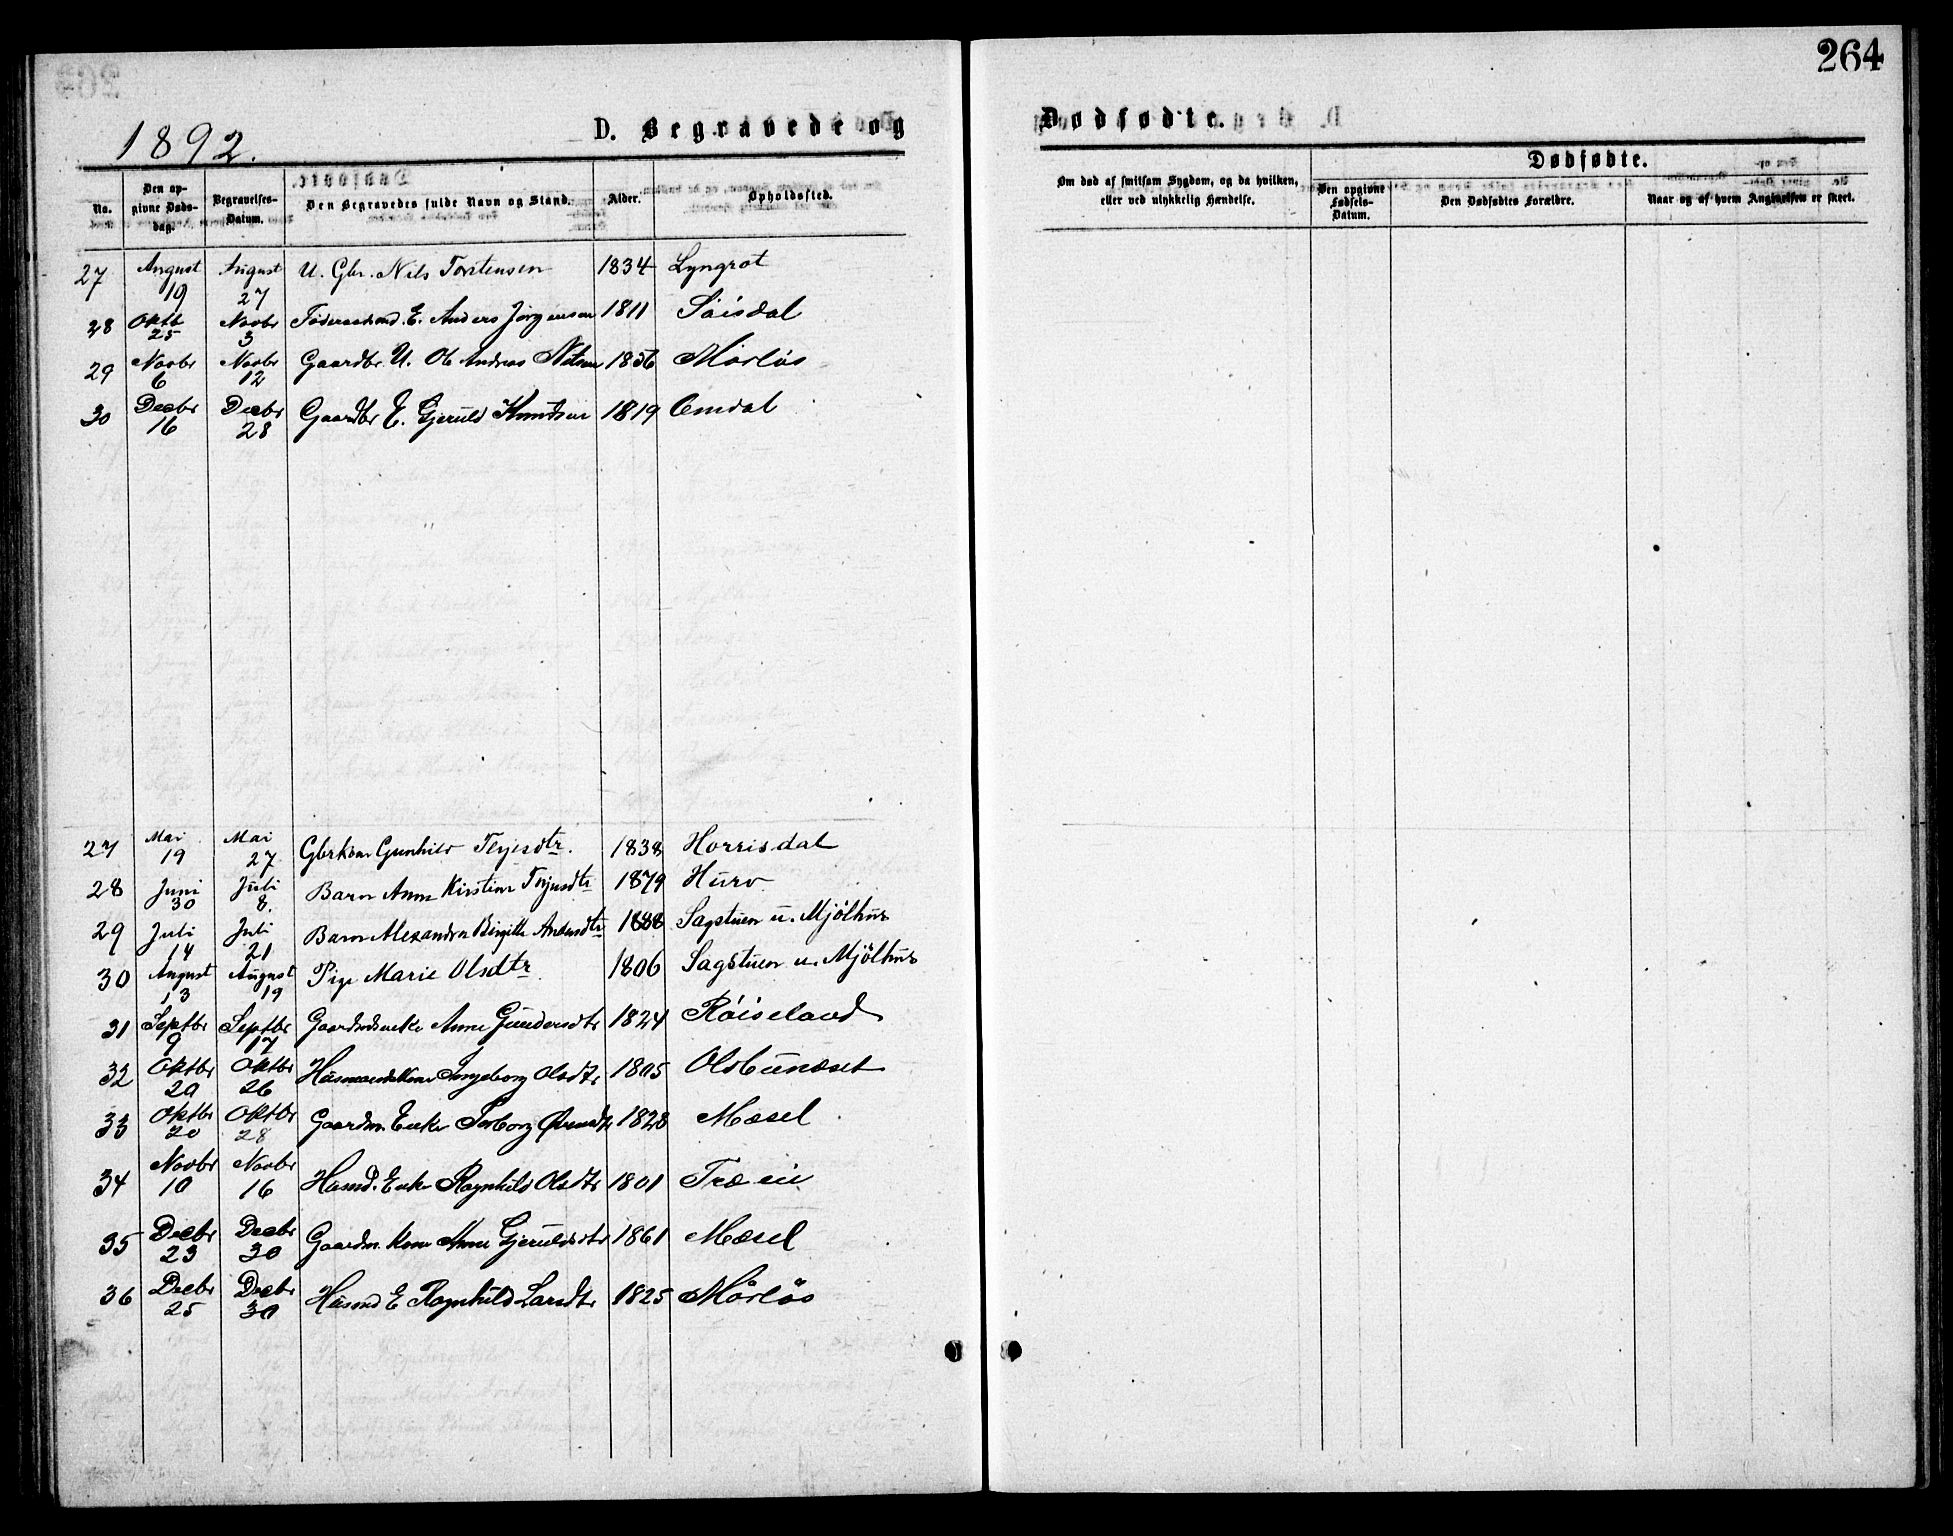 264
1892.
D. Begravede og Dødfødte.
No.
Den opgivne Dødsdag.
Begravelses-Datum.
Den Begravedes fulde Navn og Stand.
Alder.
Opholdssted.
Om død af smitsom Sygdom, og da hvilken, eller ved ulykkelig Hændelse.
Dødfødte.
Den opgivne Fødsels-Datum.
Den Dødfødtes Forældre.
Naar og af hvem Angivelsen er skeet.
27 August 19 August 27 U. Gbr. Nils Torstensen 1834 Lyngrot
28 Oktb 25 Novbr 3 E. Anders Jørgensen 1811 Söisdal
29 Novbr 6 Novbr 12 Gaardbr. U. Ole Andreas Nilsen 1856 Mörlös
30 Decbr 16 Decbr 28 Gaardbr E. Gjeruld Knudsen 1819 Omdal
27 Mai 19 Mai 27 Gbrkone Gunhild Terjesdtr. 1838 Horrisdal
28 Juni 30 Juli 8. Barn Anne Kirstine Terjesdtr 1879 Hurv
29 Juli 14 Juli 21 Barn Alexandra Birgitte 1888 Sagstuen u. Mjölhus
30 August 13 August 19 Pige Marie Olsdtr 1806 Sagstuen u. Mjölhus
31 Septbr 9 Septbr 17 Gaardmdsenke Anne Gundersdtr 1824 Röiseland
32 Oktbr 20 Oktbr 26 Husmandskone Ingeborg Olsdtr 1805
33 Oktbr 20 Oktbr 28 Gaardm. Enke Torborg 1828 Mæsel
34 Novbr 10 Novbr 16 Husmd. Enke Ragnhild Olsdtr 1801
35 Decbr 23 Decbr 30 Gaardm. Kone Anne Gjeruldsdtr 1861 Mæsel
36 Decbr 25 Decbr 30 Husmd E Ragnhild Larsdtr 1825 Mörlös